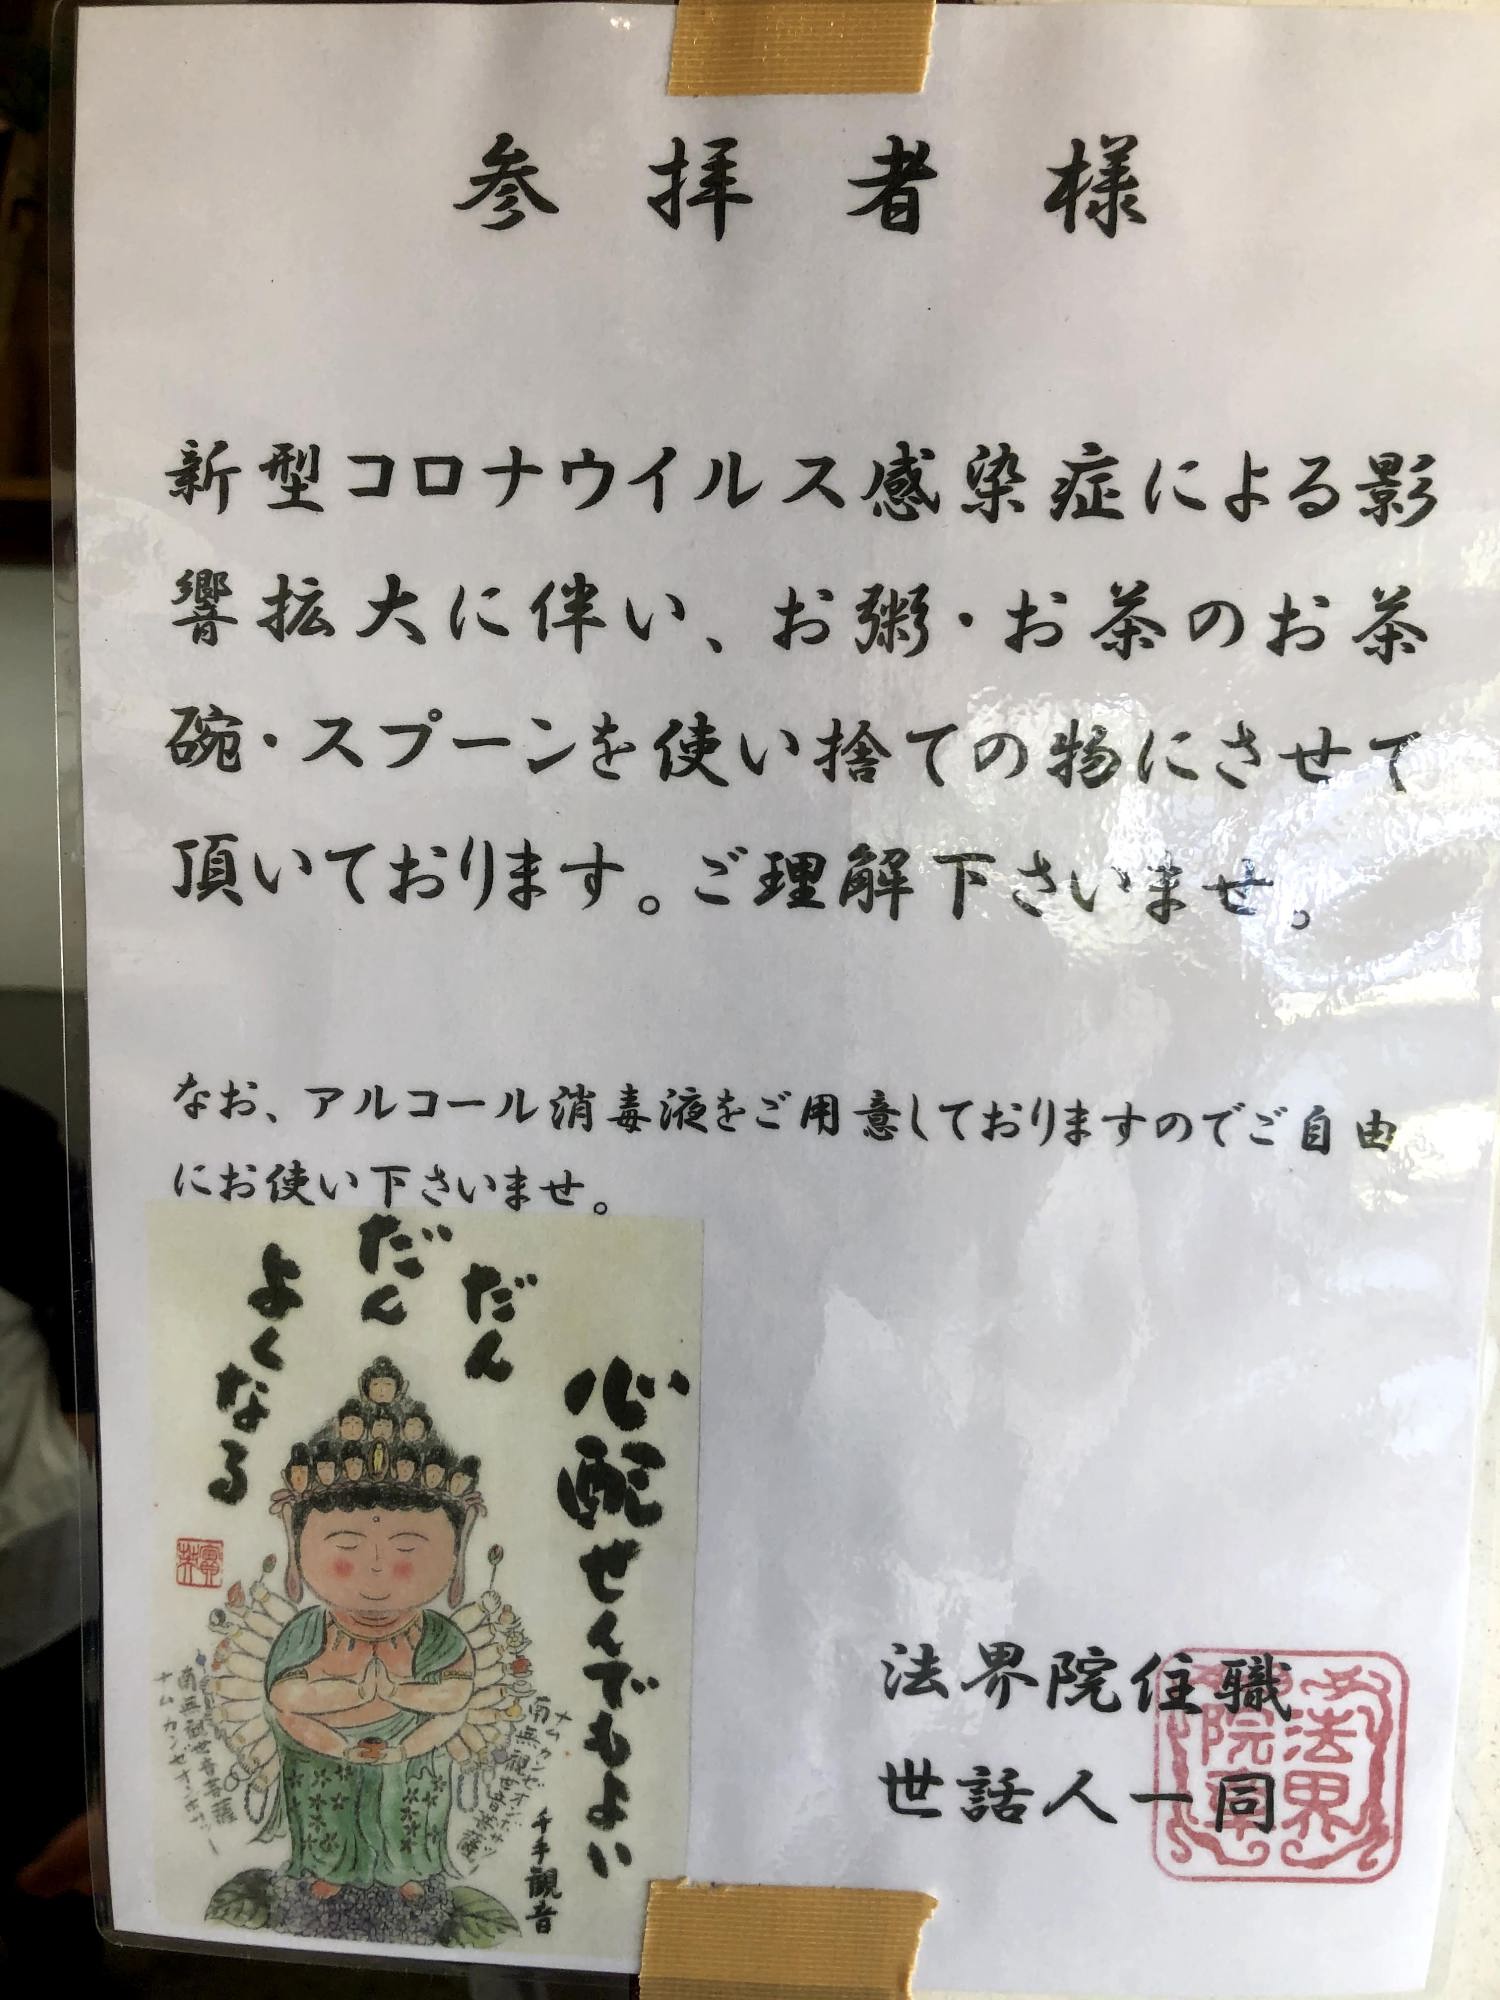 参拝者様
新型コロナウイルス感染症による影
響拡大に伴い、お粥・お茶のお茶
碗・スプーンを使い捨ての物にさせて
頂いております。ご理解下さいませ。
なお、アルコール消毒液をご用意しておりますのでご自由
にお使い下さいませ。
心配せんでもよい
だん
だん
よくなる
ナムカンゼオンボサツ
南無観世音菩薩
千手観音
南無観世音菩薩
法界院住職
世話人一同
法界
院章